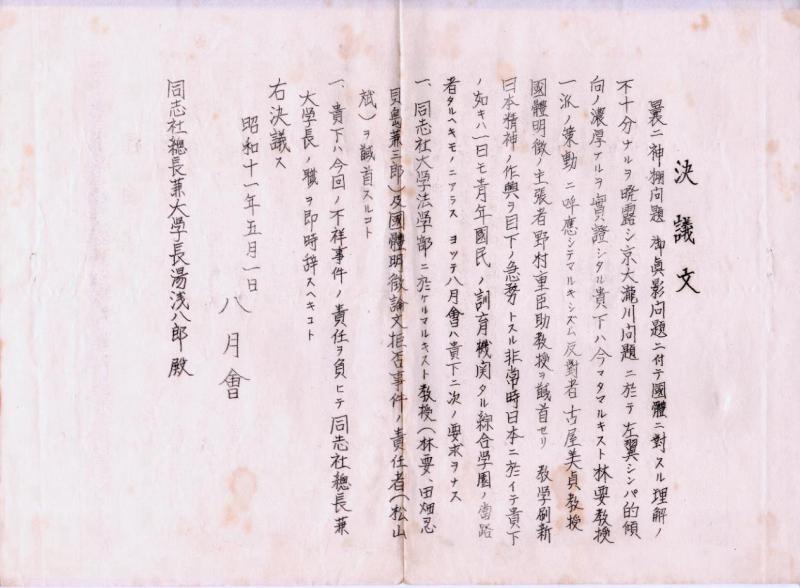 決議文
曩ニ神棚問題 御眞影問題ニ付テ國體ニ對スル理解ノ
不十分ナルヲ暁露シ京大瀧川問題ニ於テ左翼シンパ的傾
向ノ濃厚ナルヲ實證シタル貴下ハ今マタマルキスト林要教授
一派ノ策動ニ呼應シテマルキシズム反對者古屋美貞教授
國體明徴ノ主張者野村重臣助教授ヲ馘首セリ 教学刷新
日本精神ノ作興ヲ目下ノ急務トスル非常時日本ニ於イテ貴下
ノ如キハ一日モ青年國民ノ訓育機関タル綜合学園ノ當路
者タルヘキモノニアラス ヨッテ八月會ハ貴下ニ次ノ要求ヲナス
一、同志社大学法学部ニ於ケルマルキスト教授（林要、田畑忍
貝島兼三郎）及國體明徴論文拒否事件ノ責任者（松山
斌）ヲ馘首スルコト
一、貴下ハ今回ノ不祥事件ノ責任ヲ負ヒテ同志社總長兼
大学長ノ職ヲ即時辞スヘキコト
右決議ス
昭和十一年五月一日
八月會
同志社總長兼大学長湯浅八郎殿